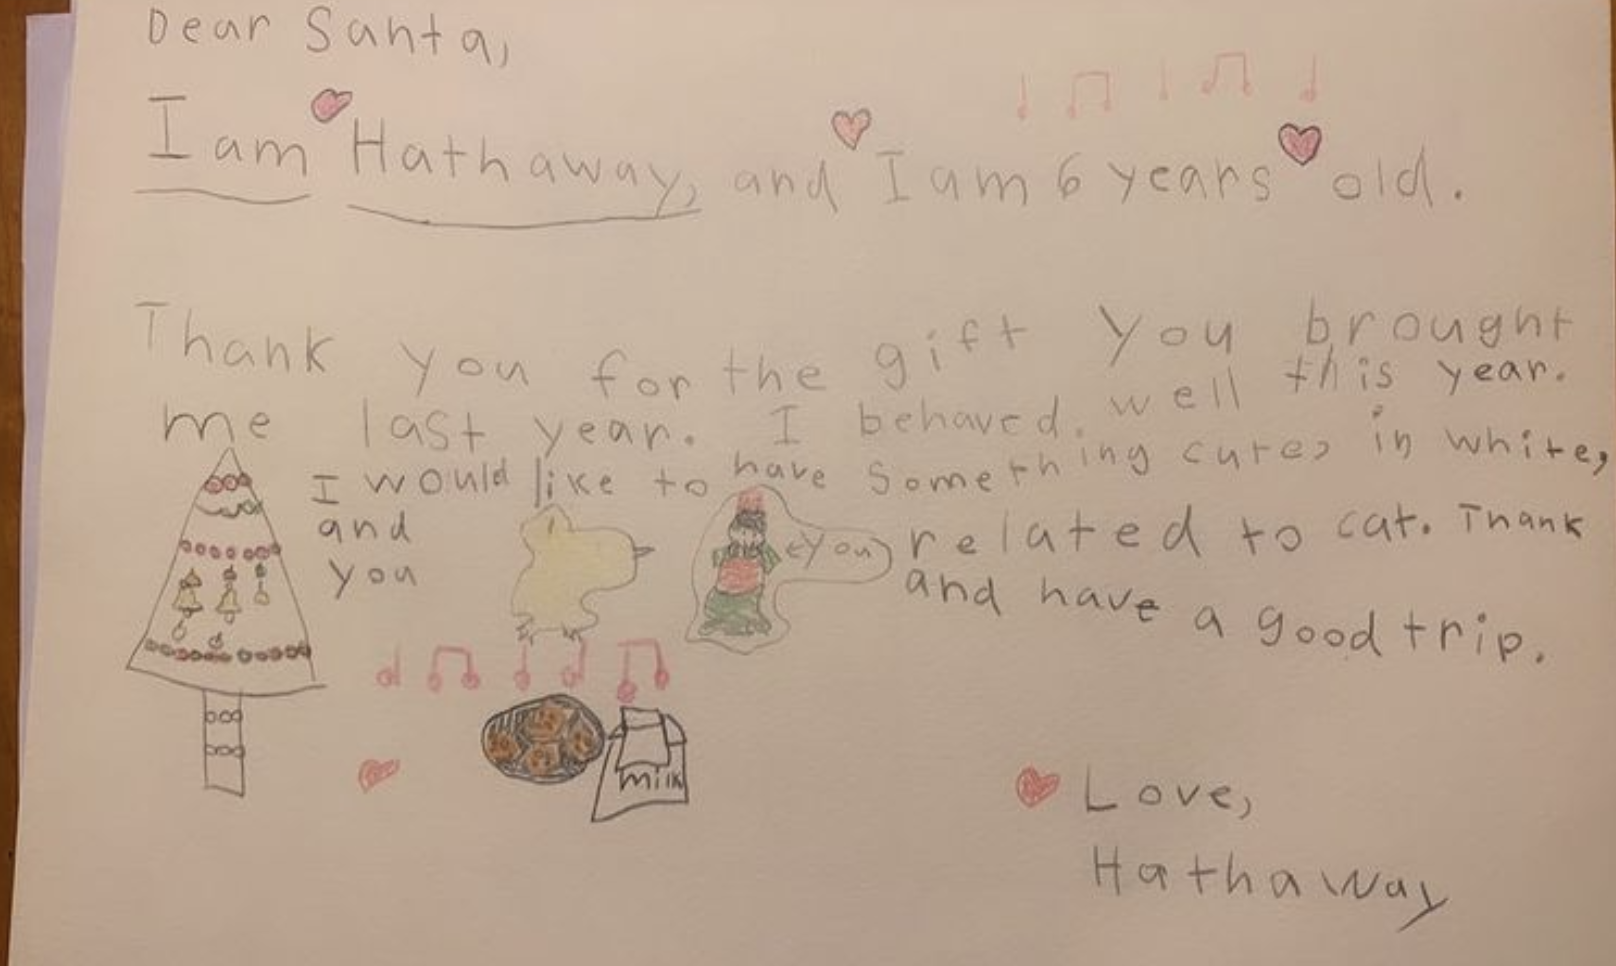 Dear Santa,
I am Hathaway, and I am 6 years old.
Thank you for the gift you brought
me last year. I behaved well this year.
I would like to have something cute, in white,
and related to cat. Thank
you and have a good trip.
you
milk
Love,
Hathaway